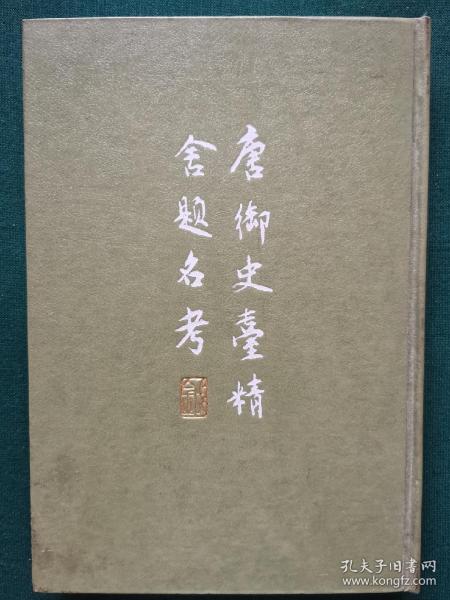 唐御史臺精
舍題名考
孔夫子旧书网
www.kongfz.com